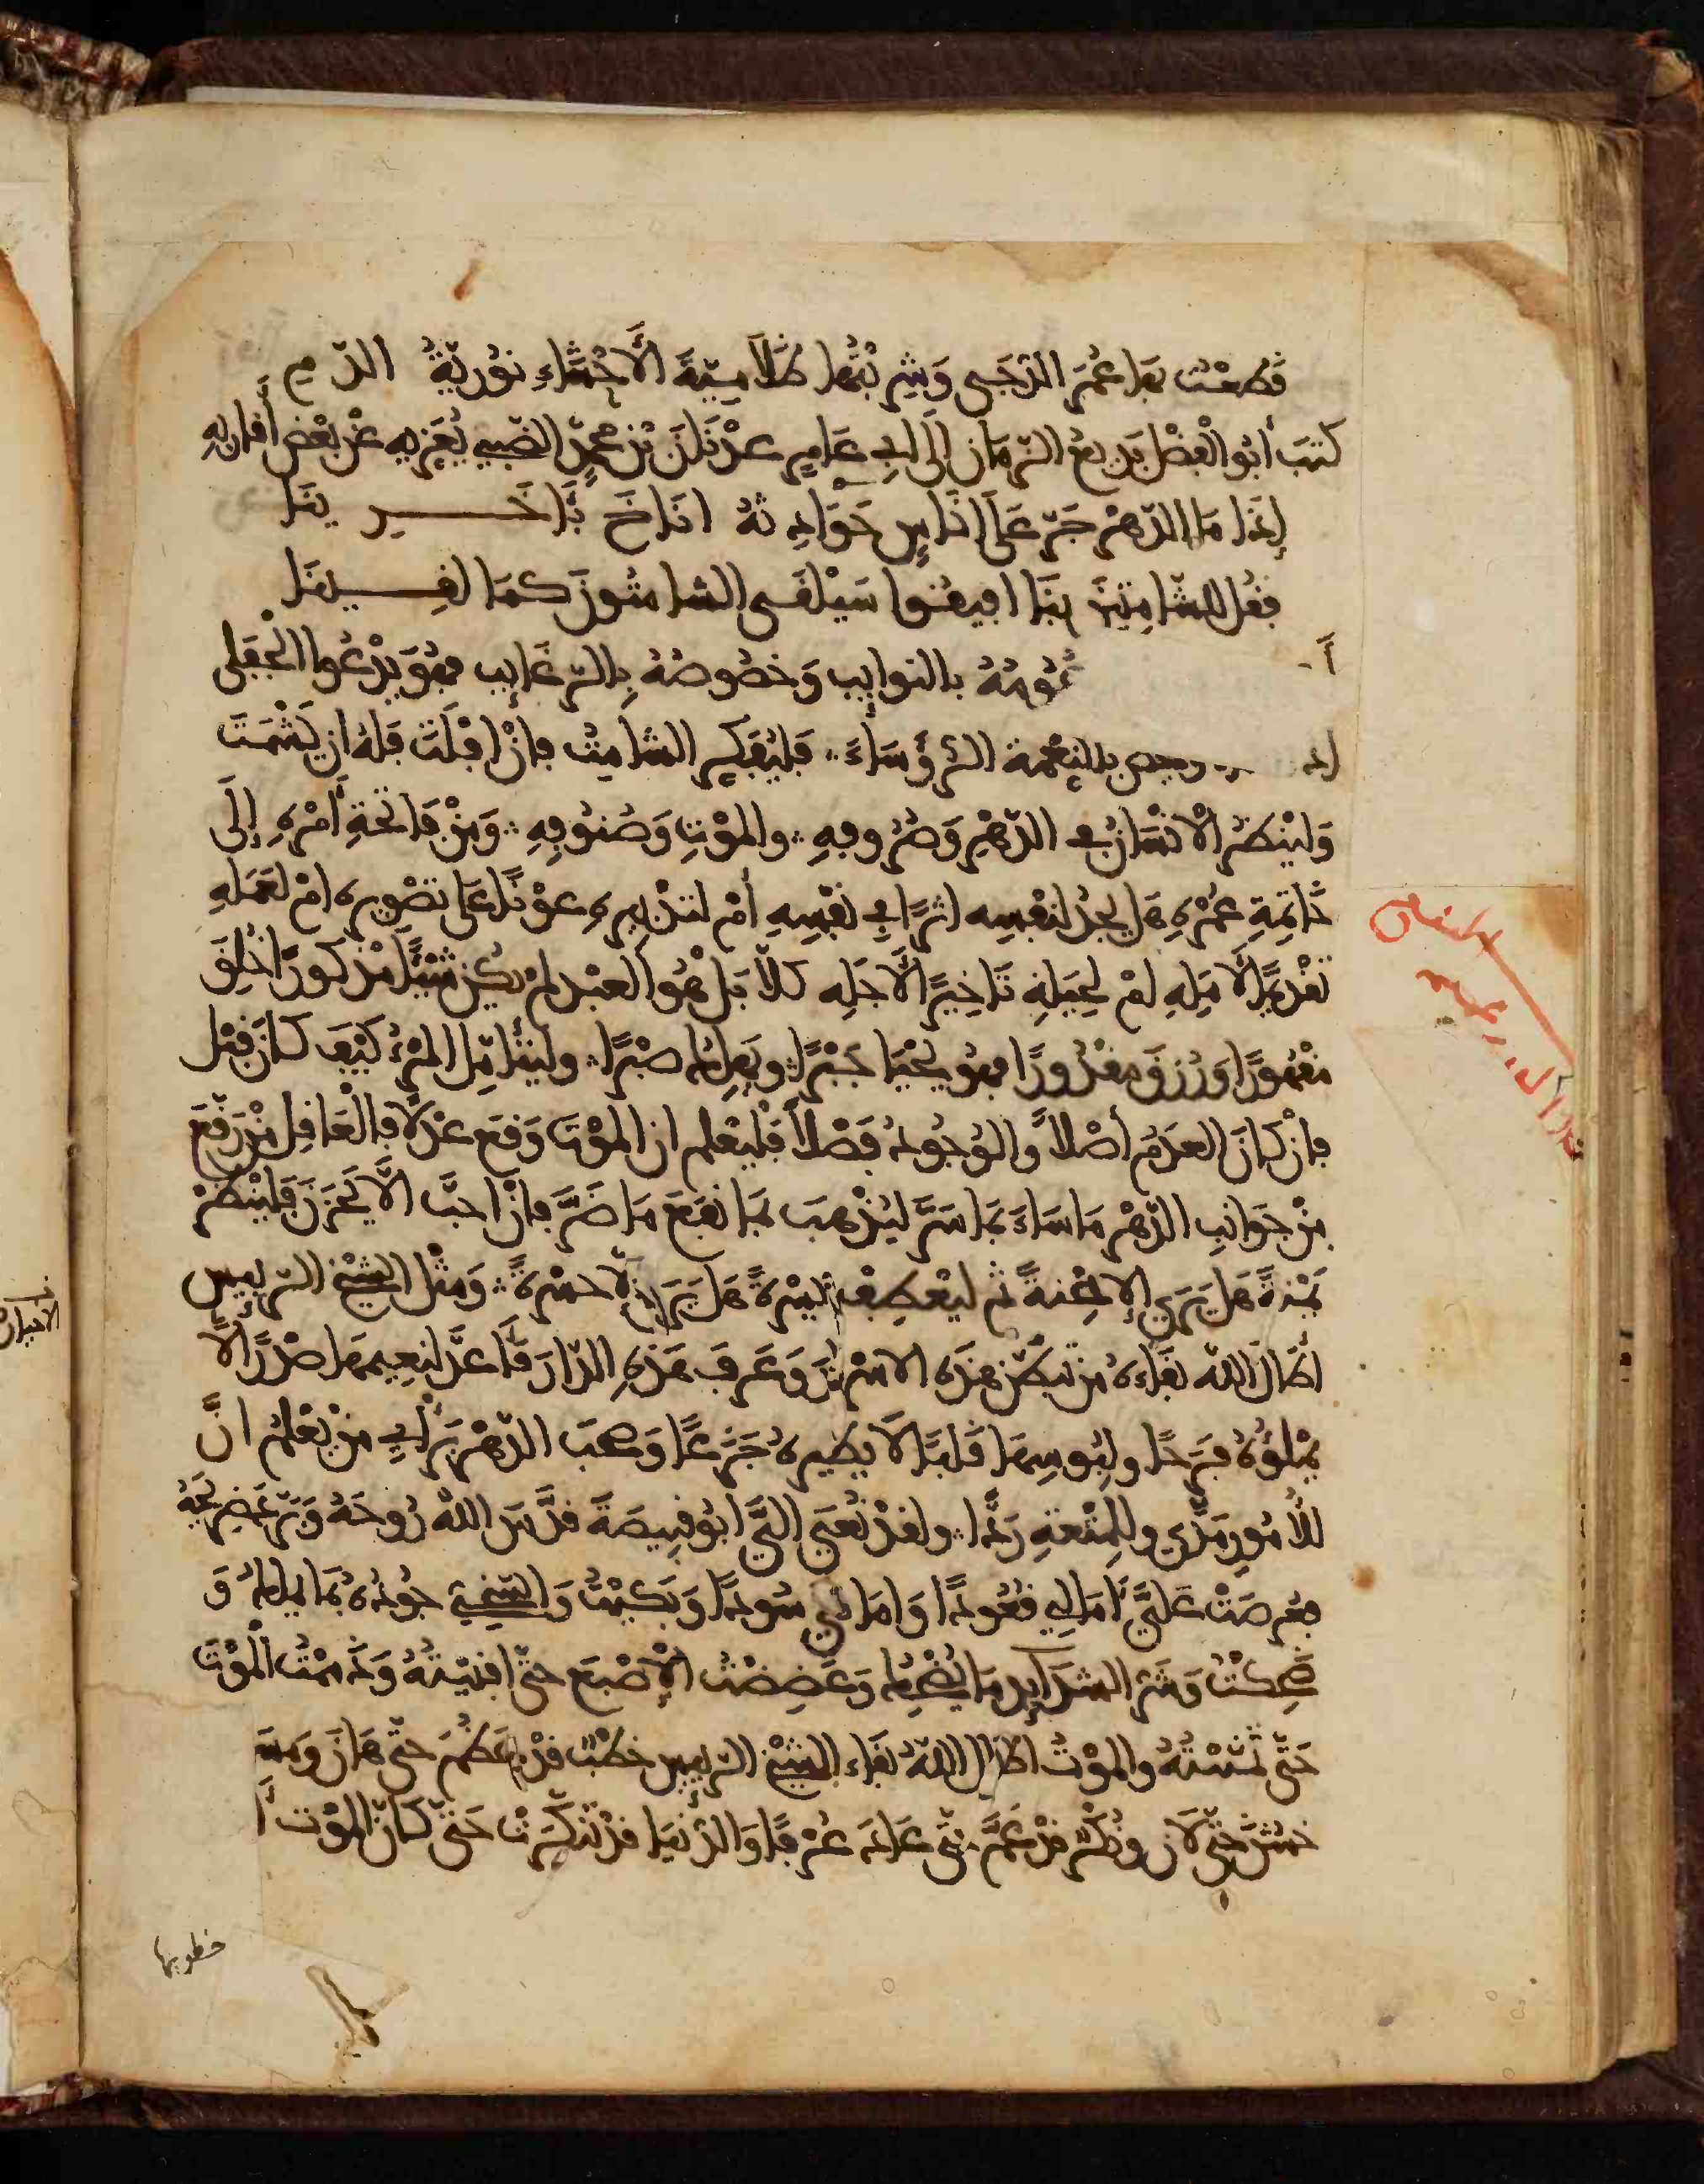 قطعت بها عمر الدجى وشربتها ظلامية الأحشاء نورية الدم
كتب أبو الفضل بديع الزمان إلى أبي عامر عدنان بن محمد الضبي يعزيه عن بعض أقاربه
إذا ما الدهر جر على أناس حوادثه أناخ بآخرينا
فقل للشامتين بنا أفيقوا سيلقى الشامتون كما لقينا
عمومه بالنوايب وخصوصه بالرغايب فهو يدعوا الجفلى
بالنعمة الرؤساء فليفكر الشامت فإن أفلت فله أن يشمت
ولينظر الإنسان في الدهر وصروفه والموت وصنوفه ومن فاتحة أمره إلى
خاتمة عمره هل يجد لنفسه أثرا في نفسه أم لتدبيره عونا على تصويره أم لعمله
تقديما لأمله أم لحيله تاخيرا لأجله كلا بل هو العبد لم يكن شيئا مذكورا خلق
مقهورا ورزق مقدورا فهو يحيا جبرا ويهلك صبرا وليتأمل المرء كيف كان قبل
فإن كان العدم أصلا والوجود فضلا فليعلم أن الموت وقع عدلا فالعاقل من رقع
من جوانب الدهر ما ساء بما سر ليذهب بما نفع ما ضر فإن أحب ألا يحزن فلينظر
يمنة هل يرى إلا محنة ثم ليعطف يسرة هل يرى إلا حسرة ومثل الشيخ الرييس
أطال الله بقاءه من تفطن هذه الاسرار وعرف هذه الدار فأعد لنعيمها صدرا لا
يملؤه فرحا ولبوسها قلبا لا يطيره جزعا وصحب الدهر برأي من يعلم أن
للأمور مدى وللمتعة ردا ولقد نعي إلي أبو قبيصة قدس الله روحه وبرد ضريحه
فعرضت علي آمالي قعودا وأماني سودا وبكيت والسخي جوده بما يملك و
ضحكت وشر الشدايد ما يضحك وعضضت الإصبع حتى أفنيته وذممت الموت
حتى تمنيته والموت أطال الله بقاء الشيخ الرييس خطب قد عظم حتى هان ومس
خشن حتى لان ونكر قد عم حتى عاد عرفا والدنيا قد تنكرت حتى كان الموت أ
خطوبها